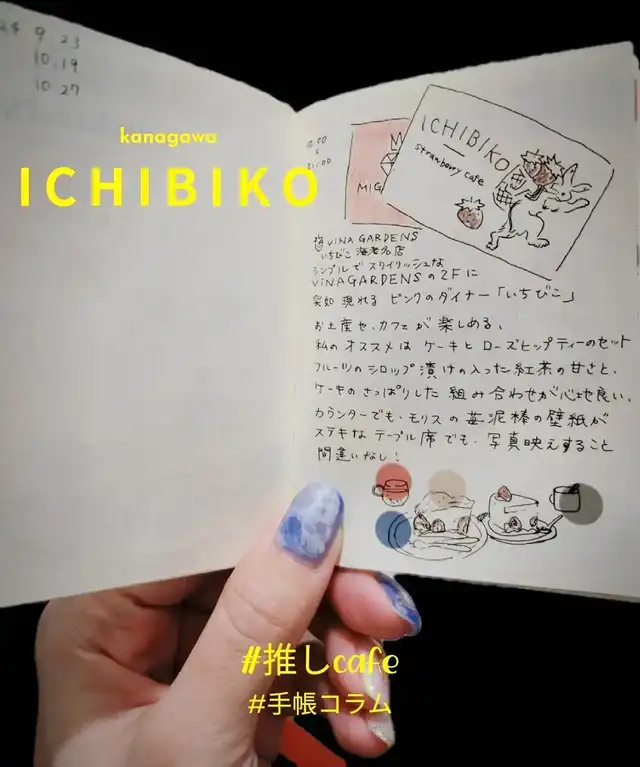 9.23
10.19
10.27
kanagawa
ICHIBIKO
10:00
21:00
MIG
ICHIBIKO
strawberry cafe
ViNA GARDENS
いちびこ 海老名店
シンプルで スタイリッシュな
ViNAGARDENSの2Fに
突如 現れる ピンクのダイナー「いちびこ」
お土産や、カフェが 楽しめる、
私の オススメは ケーキと ローズヒップティーのセット
フルーツのシロップ漬けの入った紅茶の甘さと、
ケーキの さっぱりした 組み合わせが心地良い、
カウンターでも、モリスの苺泥棒の壁紙が
ステキな テーブル席でも、写真映えすること
間違いなし!
#推しcafe
#手帳コラム